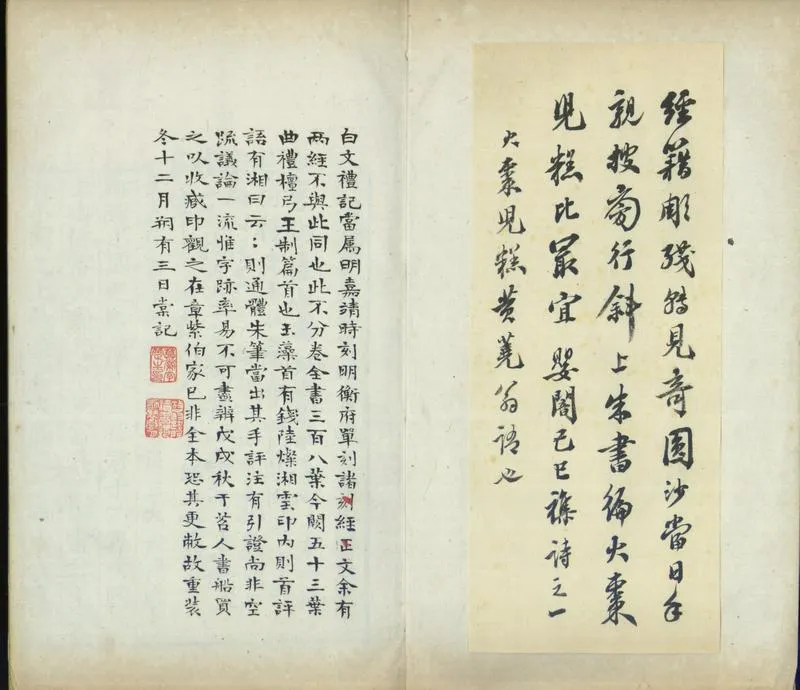 經籍彫殘雋見奇圓沙當日手
親披旁行斜上朱書徧火棗
兒糕比最宜 婴闇己巳襍詩之一
火棗兒糕黃蕘翁語也
白文禮記當属明嘉靖時刻明衡府單刻諸刻經正文余有
两經不與此同也此不分卷全書三百八葉今闕五十三葉
曲禮檀弓王制篇首也玉藻首有錢陸燦湘雲印內則首評
語有湘曰云〻則通體朱筆當出其手評注有引證尚非空
疏議論一流惟字跡率易不可盡辨戊戌秋于苕人書船買
之以收藏印觀之在章紫伯家已非全本恐其更敝故重装
冬十二月朔有三日棠記